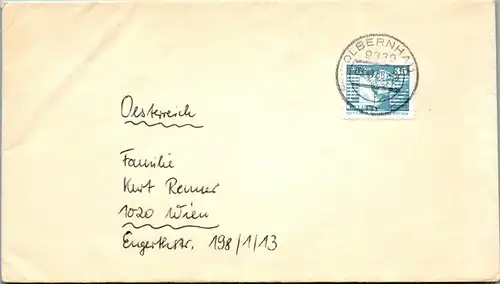 OLBERNHAU
9330
35
Oesterreich
Familie
Kurt Renner
1020 Wien
Engerthstr. 198/1/13